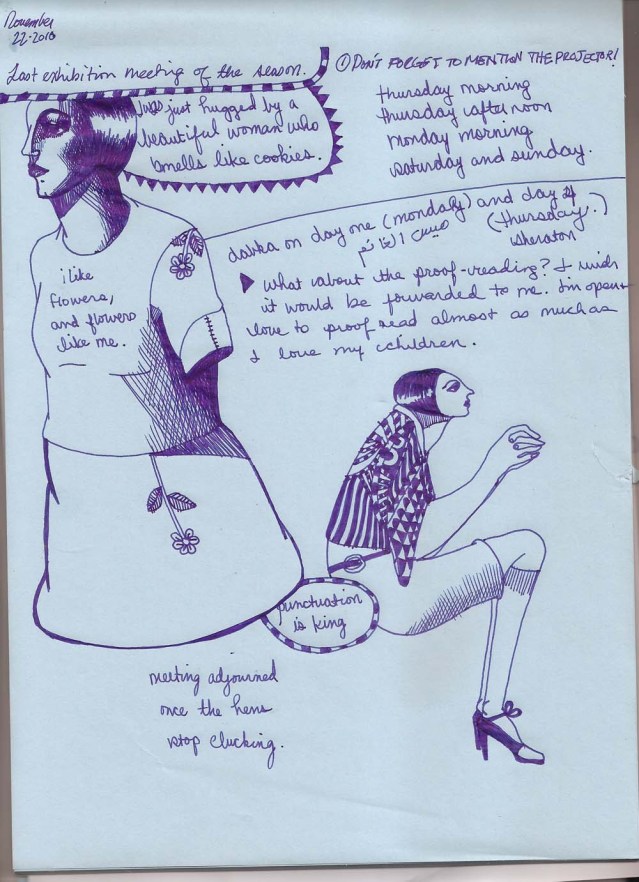 November
22-2010
Last exhibition meeting of the season.
① DON'T FORGET TO MENTION THE PROJECTOR!
thursday morning
thursday afternoon
monday morning
saturday and sunday.
i was just hugged by a
beautiful woman who
smells like cookies.
on day one (monday) and day 4
(thursday.)
sheraton
what about the proof-reading? I wish
it would be forwarded to me. I'm open
love to proof read almost as much as
I love my children.
i like
flowers,
and flowers
like me.
punctuation
is king
meeting adjourned
once the hens
stop clucking.